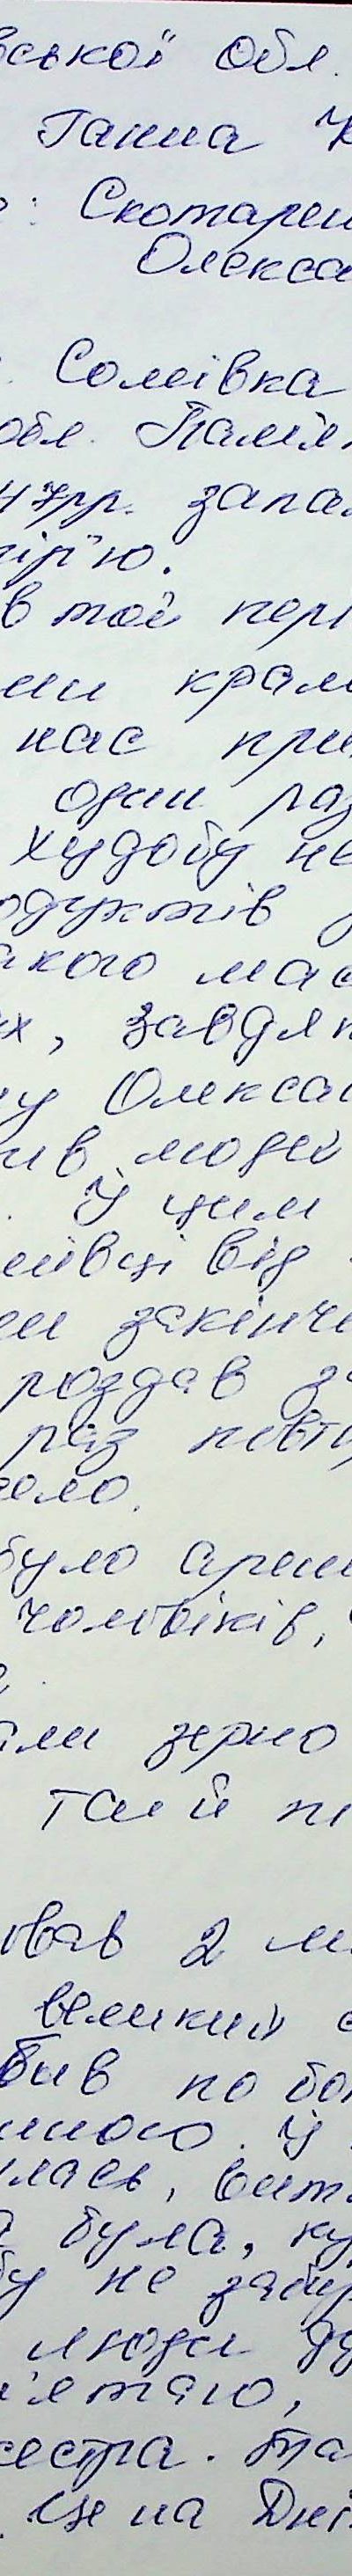 ської Обл.
Ганна К
: Скотарен
Олекса
. Соляївка
обл. Пам'я
47рр. запа
ір'ю.
в тої пері
ши крам
нас при
один раз
худобу не
одуктів
акого мас
х, завдяк
у Олексан
ив людей
. У цим
ївці від
ем закінчи
роздав з
раз повту
село.
було ареш
чоловіків,
али зерно
там й п
вав 2 м
великий с
бив по бо
ного. У
лась, вит
а була, ку
бу не забир
люди ду
м'ятаю,
сестра. та
. Це на Дні